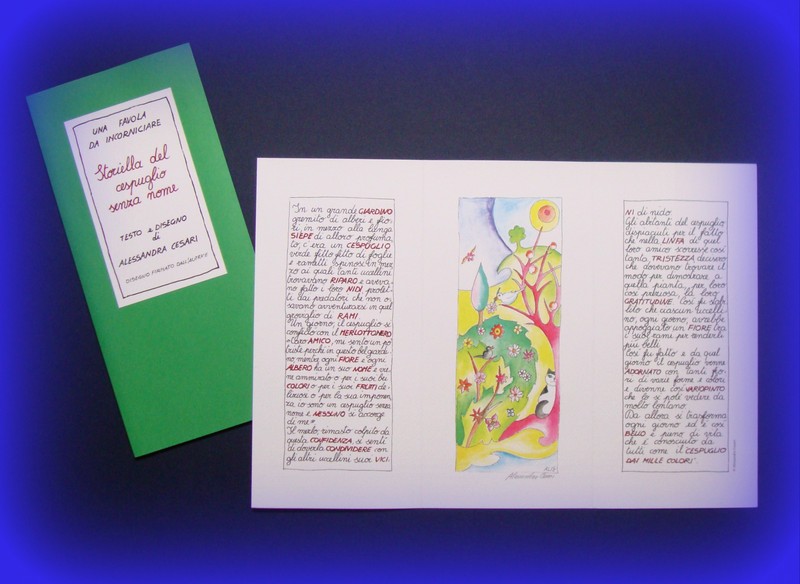 UNA FAVOLA
DA INCORNICIARE
Storiella del
cespuglio
senza nome
TESTO e DISEGNO
di
ALESSANDRA CESARI
DISEGNO FIRMATO DALL'AUTRICE
In un grande GIARDINO
gremito di alberi e fio-
ri, in mezzo alla lunga
SIEPE di alloro profuma-
to, c'era un CESPUGLIO
verde fitto fitto di foglie
e rametti spinosi in mez-
zo ai quali tanti uccellini
trovavano RIPARO e aveva-
no fatto i loro NIDI protet-
ti dai predatori che non o-
savano avventurarsi in quel
groviglio di RAMI.
Un giorno, il cespuglio si
confidò con il MERLOTTONERO
"Caro AMICO, mi sento un po'
triste perché in questo bel giardi-
no mentre ogni FIORE e ogni
ALBERO ha un suo NOME e vie-
ne ammirato o per i suoi bei
COLORI o per i suoi FRUTTI de-
liziosi o per la sua imponen-
za, io sono un cespuglio senza
nome e NESSUNO si accorge
di me".
Il merlo, rimasto colpito da
questa CONFIDENZA, si sentì
di doverla CONDIVIDERE con
gli altri uccellini suoi VICI-
NI di nido.
Gli abitanti del cespuglio
dispiaciuti per il fatto
che nella LINFA di quel
loro amico scorresse così
tanta TRISTEZZA decisero
che dovevano trovare il
modo per dimostrare a
quella pianta, per loro
così preziosa, la loro
GRATITUDINE. Così fu stabi-
lito che ciascun uccelli-
no, ogni giorno, avrebbe
appoggiato un FIORE tra
i suoi rami per renderli
più belli.
Così fu fatto e da quel
giorno il cespuglio venne
ADORNATO con tanti fio-
ri di varie forme e colori
e divenne così VARIOPINTO
che lo si può vedere da
molto lontano.
Da allora si trasforma
ogni giorno ed è così
BELLO e pieno di vita
che è conosciuto da
tutti come il CESPUGLIO
DAI MILLE COLORI.